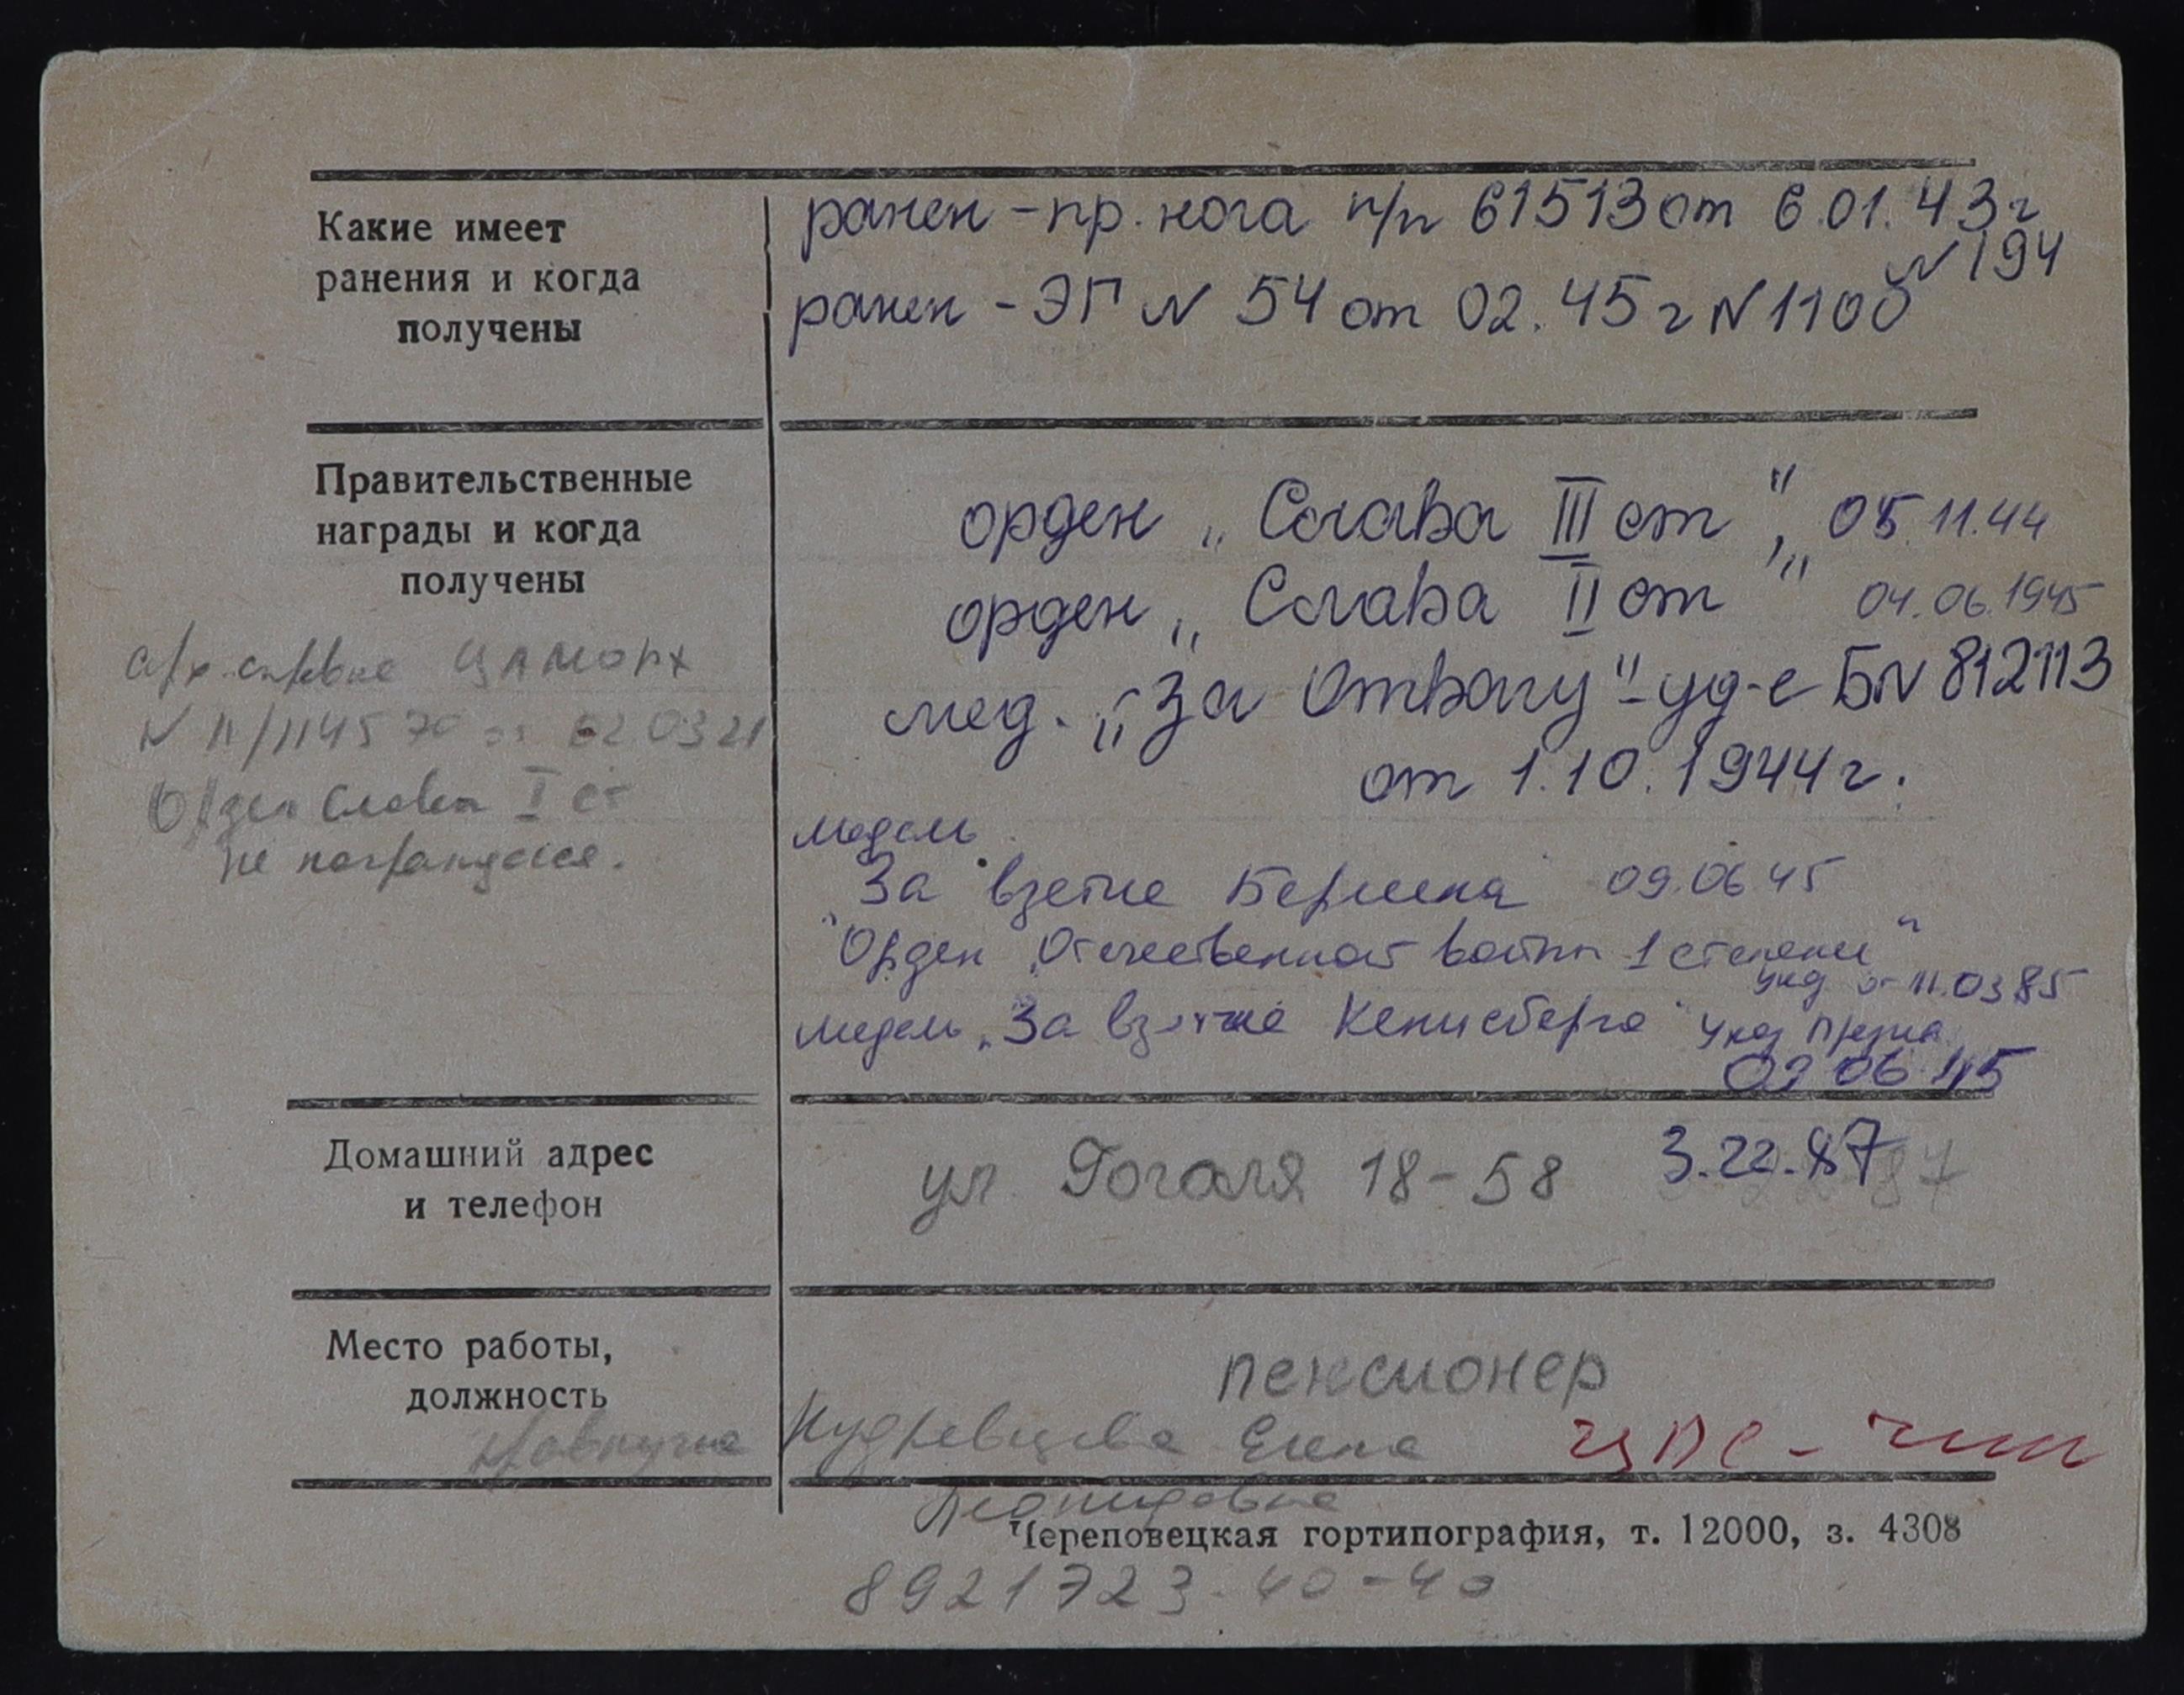 Какие имеет
ранения и когда
получены
ранен - пр. нога п/п 61513 от 6.01.43г
N 194
ранен - ЭГ N 54 от 02.45г N 1100
Правительственные
награды и когда
получены
орден „Слава III ст", 05.11.44
орден „Слава II ст" 04.06.1945
мед. „За Отвагу" - уд-е Б N 812113
от 1.10.1944г.
медаль
"За взятие Берлина" 09.06.45
"Орден Отечественной войны 1 степени"
указ от 11.03.85
медаль „За взятие Кенигсберга" Указ През
09.06.45
арх. справка ЦАМО РФ
N П/114570 от 02.03.21
Орден Славы I ст
не награждался.
Домашний адрес
и телефон
ул Гоголя 18-58 3.22.87
Место работы,
должность
пенсионер
правнучка Кудревцева Елена
Леонидовна
Череповецкая гортипография, т. 12000, з. 4308
8921723-40-40